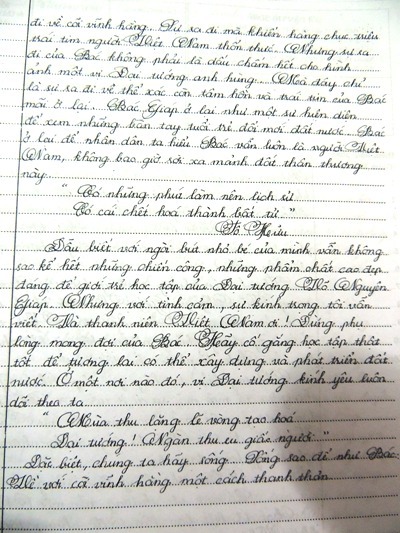 đi về cõi vĩnh hằng. Sự ra đi mà khiến hàng chục triệu
trái tim người Việt Nam thổn thức. Nhưng sự ra
đi của Bác không phải là dấu chấm hết cho hình
ảnh một vị Đại tướng anh hùng. Mà đây chỉ
là sự ra đi về thể xác còn tâm hồn và trái tim của Bác
mãi ở lại. Bác Giáp ở lại như một sự hiện diện
để xem những bàn tay tuổi trẻ đổi mới đất nước. Bác
ở lại để nhân dân ta hiểu Bác vẫn luôn là người Việt
Nam, không bao giờ rời xa mảnh đất thân thương
này.
" Có những phút làm nên lịch sử
Có cái chết hoá thành bất tử "
Tố Hữu
Dẫu biết với ngòi bút nhỏ bé của mình vẫn không
sao kể hết những chiến công, những phẩm chất cao đẹp
đáng để giới trẻ học tập của Đại tướng Võ Nguyên
Giáp. Nhưng với tình cảm, sự kính trọng tôi vẫn
viết. Là thanh niên Việt Nam ơi! Đừng phụ
lòng mong đợi của Bác. Hãy cố gắng học tập thật
tốt để tương lai có thể xây dựng và phát triển đất
nước. Ở một nơi nào đó, vị Đại tướng kính yêu luôn
dõi theo ta.
" Mùa thu lặng lẽ vòng tạo hoá
Đại tướng! Ngàn thu ru giấc người "
Đặc biệt, chúng ta hãy sống sao để như Bác:
Về với cõi vĩnh hằng một cách thanh thản